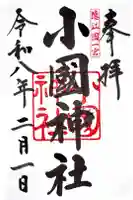 奉拝
遠江國一宮
小國神社
令和八年二月一日